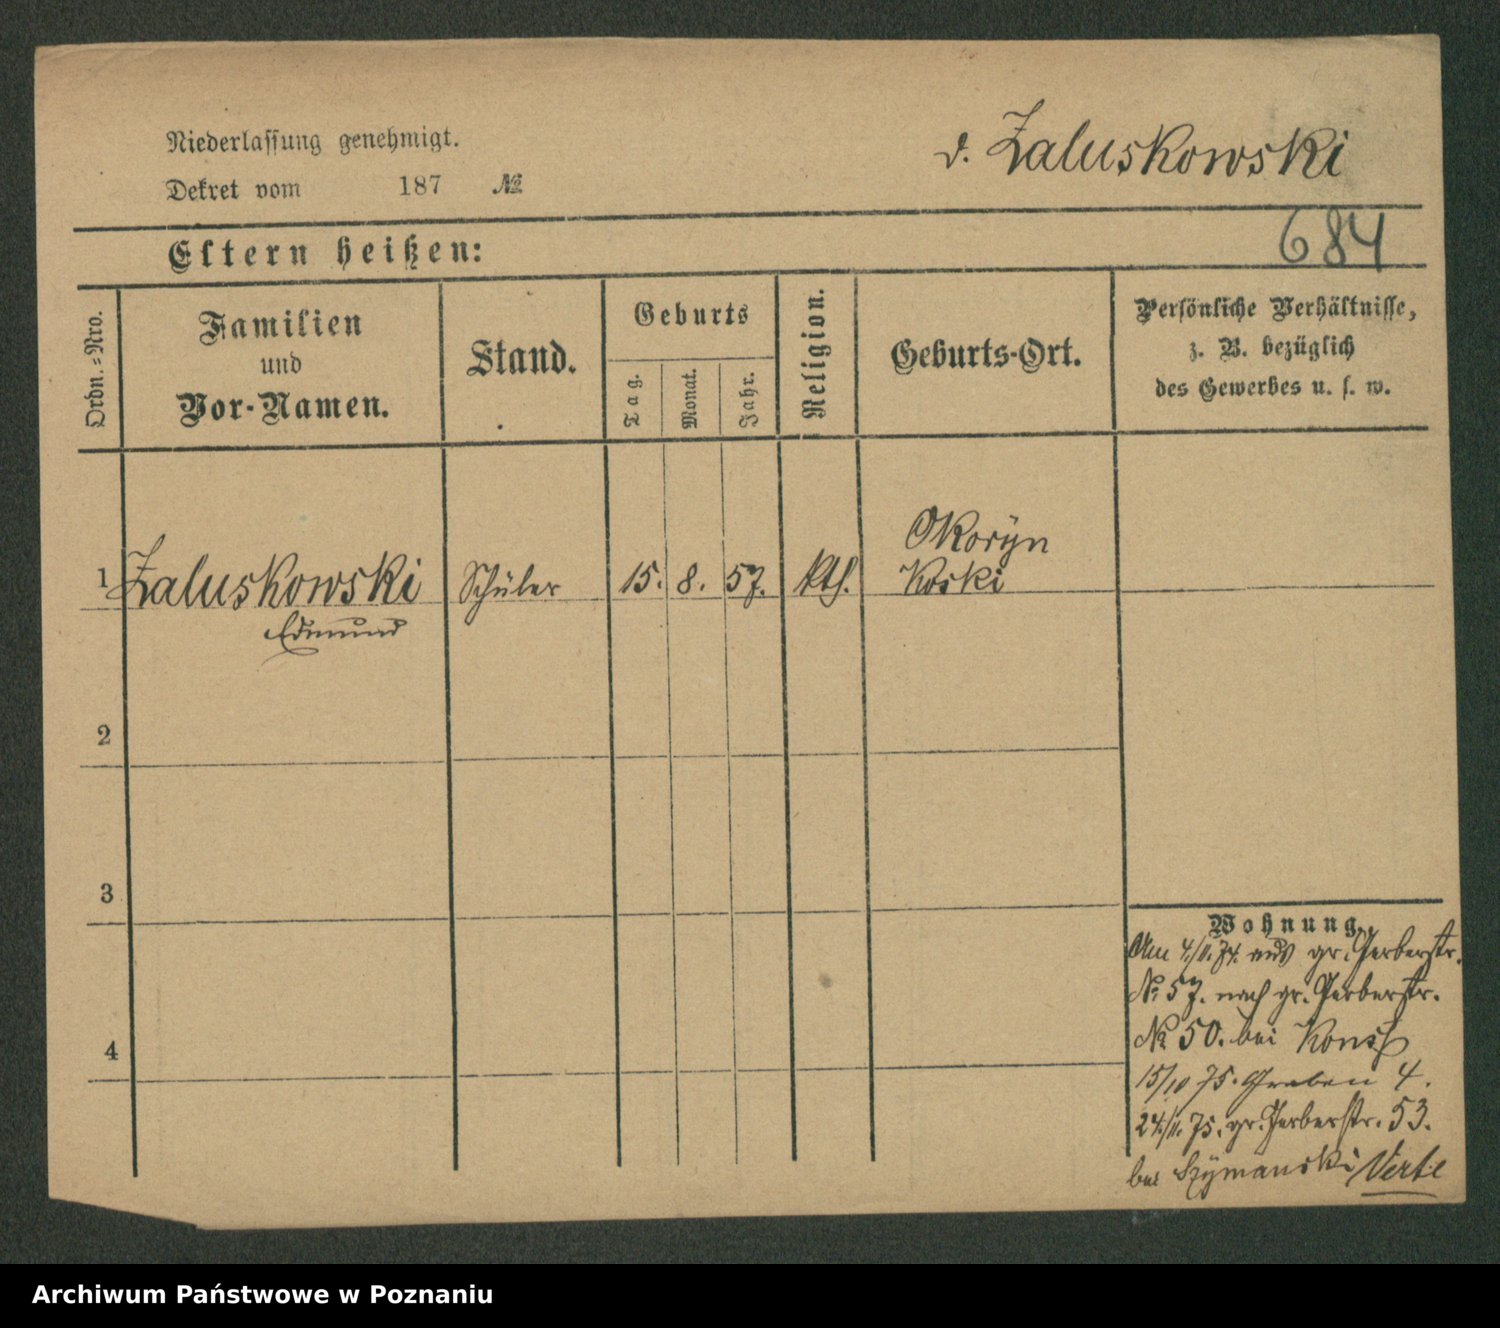 Niederlassung genehmigt.
Dekret vom 187 №
v. Zaluskowski
Eltern heißen:
684
Ordn.=Nro.
Familien
und
Vor-Namen.
Stand.
Geburts
Tag.
Monat.
Jahr.
Religion.
Geburts-Ort.
Persönliche Verhältnisse,
z. B. bezüglich
des Gewerbes u. s. w.
1 Zaluskowski Schüler 15. 8. 57. kth.
Edmund
Okoryn
Koski
2
3
4
Wohnung.
Am 4./11. 74. aus gr. Gerberstr.
№ 57. nach gr. Gerberstr.
№ 50. bei
15/10 75. Graben 4.
24/11. 75. gr. Gerberstr. 53.
bei Szymanski Verte